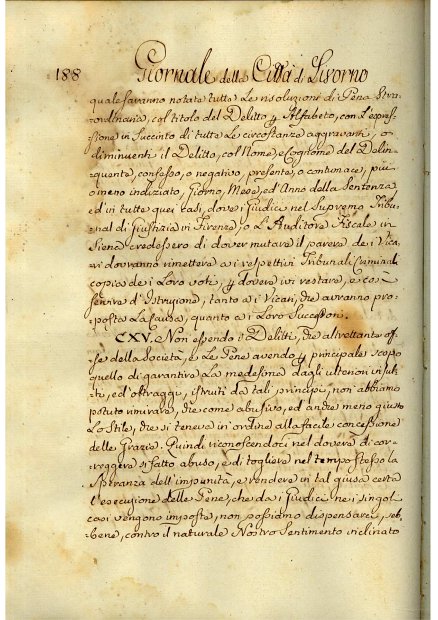 188 Giornale della Città di Livorno
quale saranno notate tutte Le risoluzioni di Pena Stra-
ordinaria, col titolo del Delitto p Alfabeto, con L'espres-
sione in Succinto di tutte Le circostanze aggravanti, o
diminuenti il Delitto, col Nome, e Cognome del Delin-
quente, confesso, o negativo, presente, o contumace, più
o meno indiziato, Giorno, Mese, ed' Anno della Sentenza
ed' in tutte quei casi, dove i Giudici nel Supremo Tribu-
nal di Giustizia in Firenze, o L'Auditore Fiscale in
Siena credessero di dover mutare il parere de i Vica-
ri dovranno rimettere a i respettivi Tribunali Criminali
copia de i Loro voti, p dovere ivi restare, e così
servire d'Istruzione, tanto a i Vicari, che avranno pro-
posta La Causa, quanto a i Loro Successori.
CXV. Non essendo i Delitti, che altrettante of-
fese della Società, e Le Pene avendo p principale scopo
quello di garantire La medesima dagli ulteriori insul-
ti, ed' oltraggi, istruiti da tali principi, non abbiamo
potuto rimirare, che come abusivo, ed anche meno giusto
Lo Stile, che si teneva in ordine alla facile concessione
delle Grazie. Quindi riconoscendoci nel dovere di cor-
reggere sì fatto abuso, e di togliere nel tempo stesso la
Speranza dell'impunità, e rendere in tal guisa certa
l'esecuzione delle Pene, che da i Giudici ne i singoli
casi vengono imposte, non possiamo dispensarci, seb-
bene, contro il naturale Nostro Sentimento inclinato